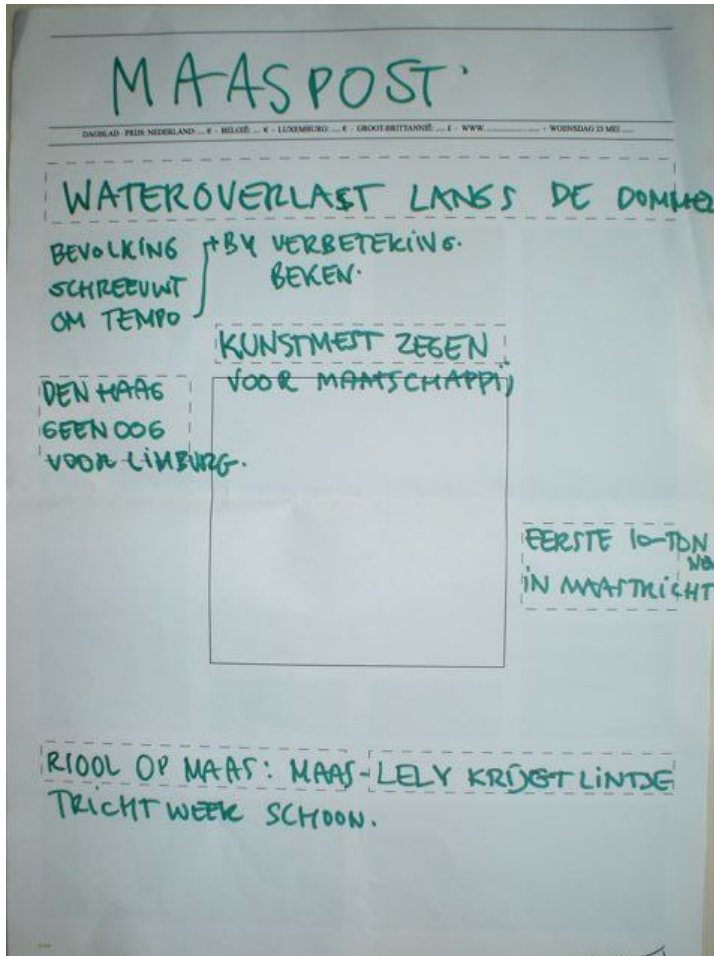 MAASPOST
DAGBLAD - PRIJS: NEDERLAND: ... € - BELGIË: ... € - LUXEMBURG: ... € - GROOT-BRITTANNIË: ... £ - WWW. ........................ - WOENSDAG 23 MEI .....
WATEROVERLAST LANGS DE DOMMEL
BEVOLKING
SCHREEUWT
OM TEMPO
+BY VERBETEKING.
BEKEN.
KUNSTMEST ZEGEN
VOOR MAATSCHAPPIJ
DEN HAAG
GEEN OOG
VOOR LIMBURG.
EERSTE 10-TON
IN MAASTRICHT
RIOOL OP MAAS: MAAS-
TRICHT WEER SCHOON.
LELY KRIJGT LINTJE